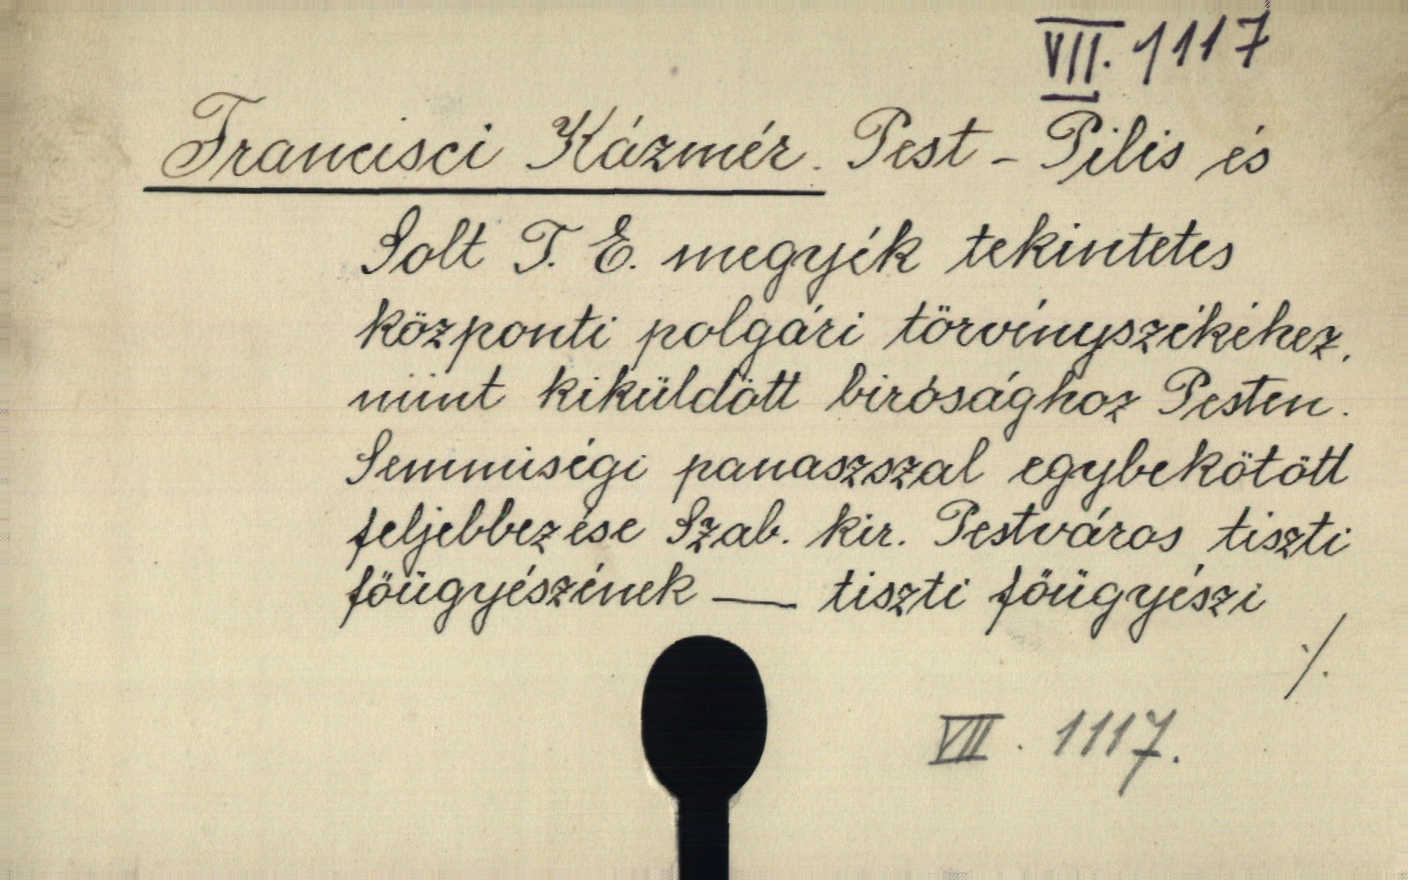 VII. 1117
Francisci Kázmér. Pest - Pilis és
Solt T. E. megyék tekintetes
központi polgári törvényszékéhez,
mint kiküldött birósághoz Pesten.
Semmiségi panaszszal egybekötött
feljebbezése Szab. kir. Pestváros tiszti
főügyészének — tiszti főügyészi
./.
VII. 1117.